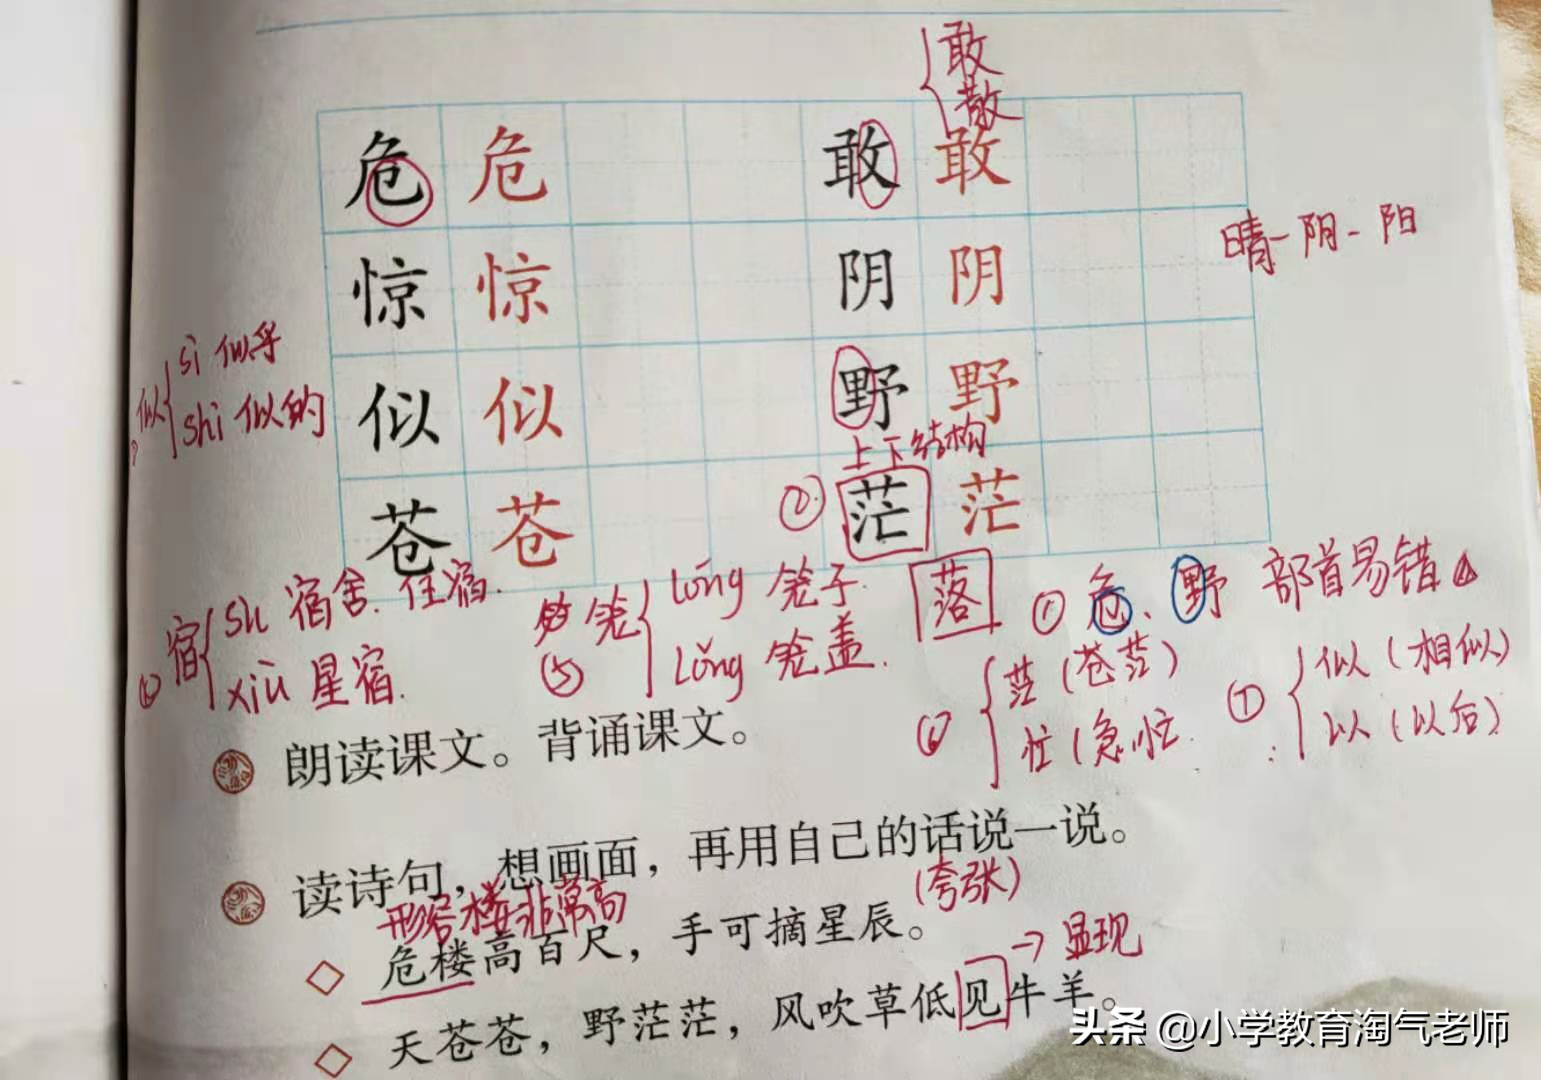 敢
散
危 危 敢 敢
惊 惊 阴 阴
晴-阴-阳
似 sì 似乎
shì 似的
似 似 野 野
上下结构
苍 苍 ② 茫 茫
宿 sù 宿舍. 住宿.
xiù 星宿.
笼 lóng 笼子.
lǒng 笼盖.
落
① 危、野 部首易错
茫(苍茫)
忙(急忙
似(相似)
以(以后)
朗读课文。背诵课文。
读诗句，想画面，再用自己的话说一说。
形容楼非常高
(夸张)
危楼高百尺，手可摘星辰。
→显现
天苍苍，野茫茫，风吹草低见牛羊。
头条 @小学教育淘气老师